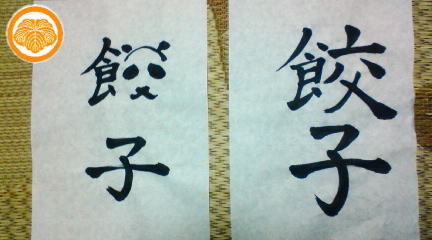 餃子
餃子